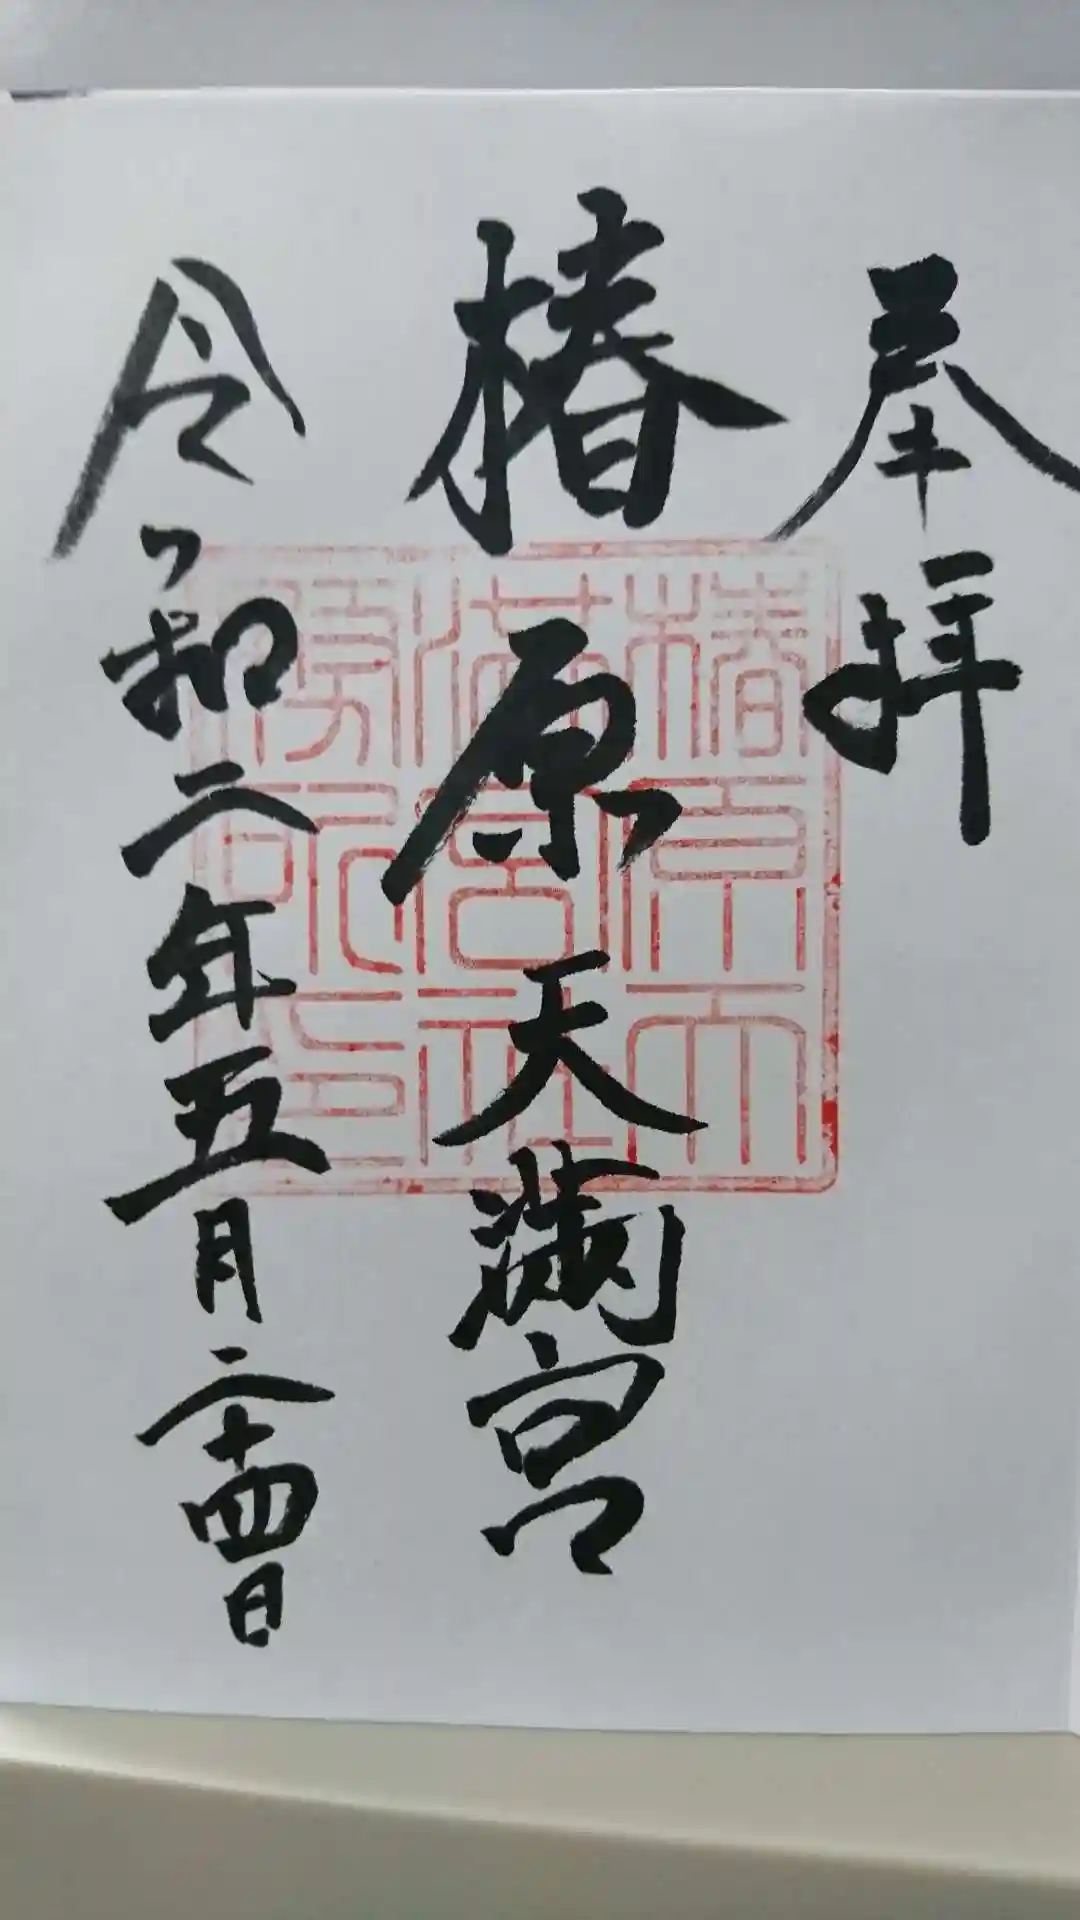 奉拝
椿原天満宮
令和二年五月二十四日
椿原天
満宮社
務所印